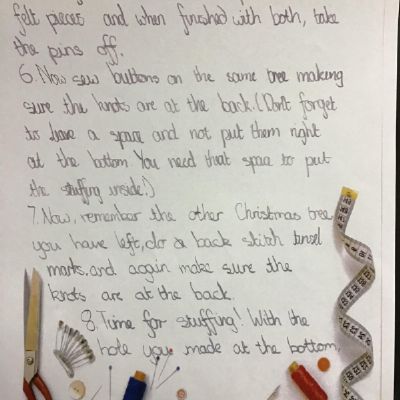 felt pieces and when finished with both, take
the pins off.
6. Now sew buttons on the same tree making
sure the knots are at the back. (Don't forget
to leave a space and not put them right
at the bottom. You need that space to put
the stuffing inside!)
7. Now, remember the other Christmas tree
you have left, do a back stitch tinsel
marks, and again make sure the
knots are at the back.
8. Time for stuffing! With the
hole you made at the bottom,